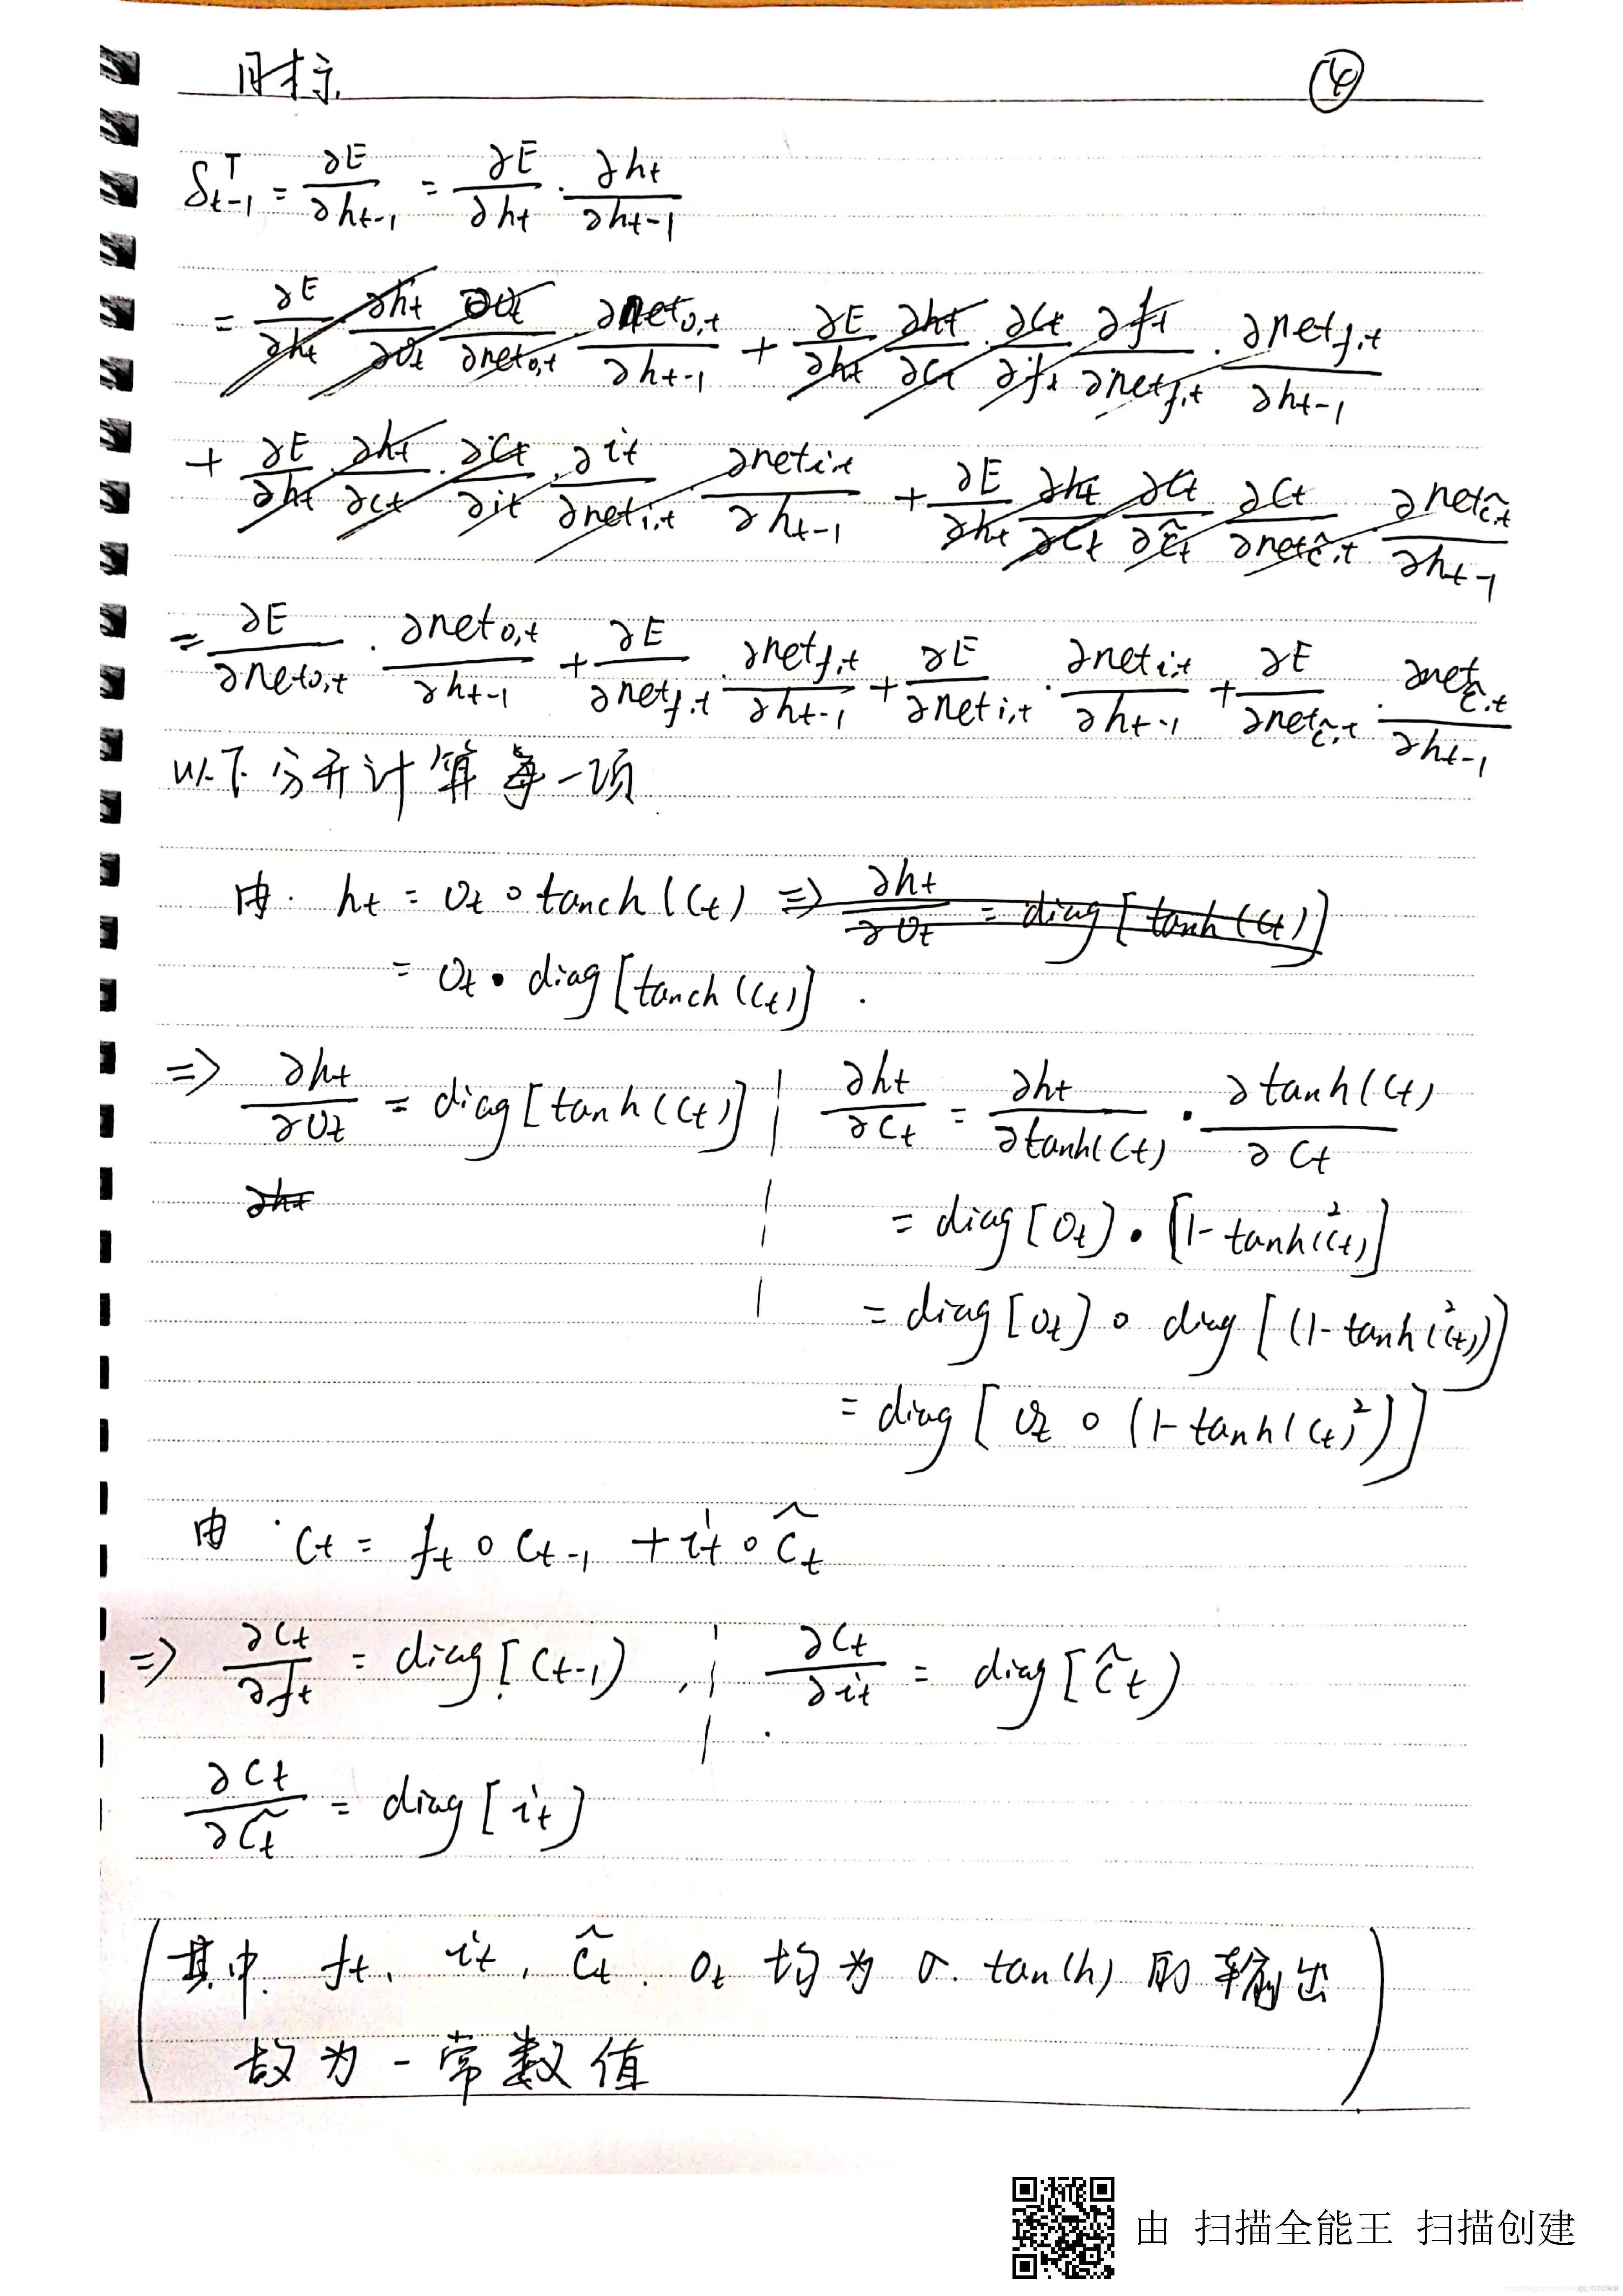 同样, ④
δᵀ_{t-1} = ∂E/∂h_{t-1} = ∂E/∂h_t · ∂h_t/∂h_{t-1}
= ∂E/∂h_t · ∂h_t/∂o_t · ∂o_t/∂net_{o,t} · ∂net_{o,t}/∂h_{t-1} + ∂E/∂h_t · ∂h_t/∂c_t · ∂c_t/∂f_t · ∂f_t/∂net_{f,t} · ∂net_{f,t}/∂h_{t-1}
+ ∂E/∂h_t · ∂h_t/∂c_t · ∂c_t/∂i_t · ∂i_t/∂net_{i,t} · ∂net_{i,t}/∂h_{t-1} + ∂E/∂h_t · ∂h_t/∂c_t · ∂c_t/∂ĉ_t · ∂c_t/∂net_{ĉ,t} · ∂net_{ĉ,t}/∂h_{t-1}
= ∂E/∂net_{o,t} · ∂net_{o,t}/∂h_{t-1} + ∂E/∂net_{f,t} · ∂net_{f,t}/∂h_{t-1} + ∂E/∂net_{i,t} · ∂net_{i,t}/∂h_{t-1} + ∂E/∂net_{ĉ,t} · ∂net_{ĉ,t}/∂h_{t-1}
以下分开计算每一项.
由. h_t = o_t ∘ tanch(c_t) ⇒ ∂h_t/∂o_t = diag[tanh(c_t)]
= o_t • diag[tanch(c_t)] .
⇒ ∂h_t/∂o_t = diag[tanh(c_t)] | ∂h_t/∂c_t = ∂h_t/∂tanh(c_t) • ∂tanh(c_t)/∂c_t
∂h_t
= diag[o_t] • [1-tanh²(c_t)]
= diag[o_t] ∘ diag[(1-tanh²(c_t))]
= diag[o_t ∘ (1-tanh(c_t)²)]
由 · c_t = f_t ∘ c_{t-1} + i_t ∘ ĉ_t
⇒ ∂c_t/∂f_t = diag[c_{t-1}] , | ∂c_t/∂i_t = diag[ĉ_t]
∂c_t/∂ĉ_t = diag[i_t]
(其中. f_t、i_t, ĉ_t. o_t 均为 σ. tan(h) 的输出
故为一常数值)
由 扫描全能王 扫描创建